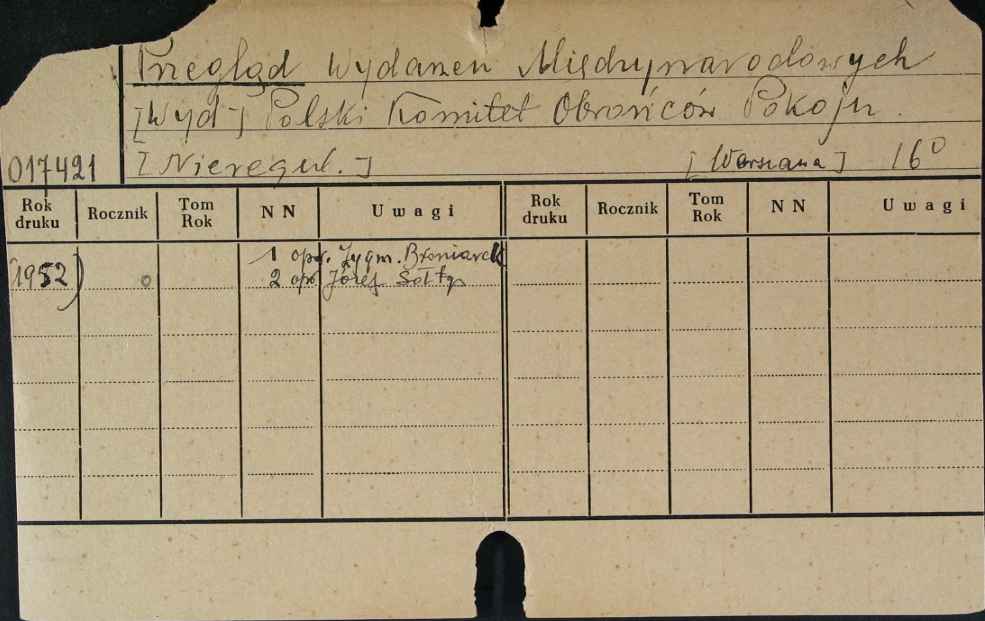 Przegląd Wydarzeń Międzynarodowych
[Wyd.] Polski Komitet Obrońców Pokoju.
017421 [Nieregul.] [Warszawa] 16°
Rok druku Rocznik Tom Rok NN Uwagi Rok druku Rocznik Tom Rok NN Uwagi
1 opr. Zygm. Broniarek
1952) 2 opr. Józef Sołtys